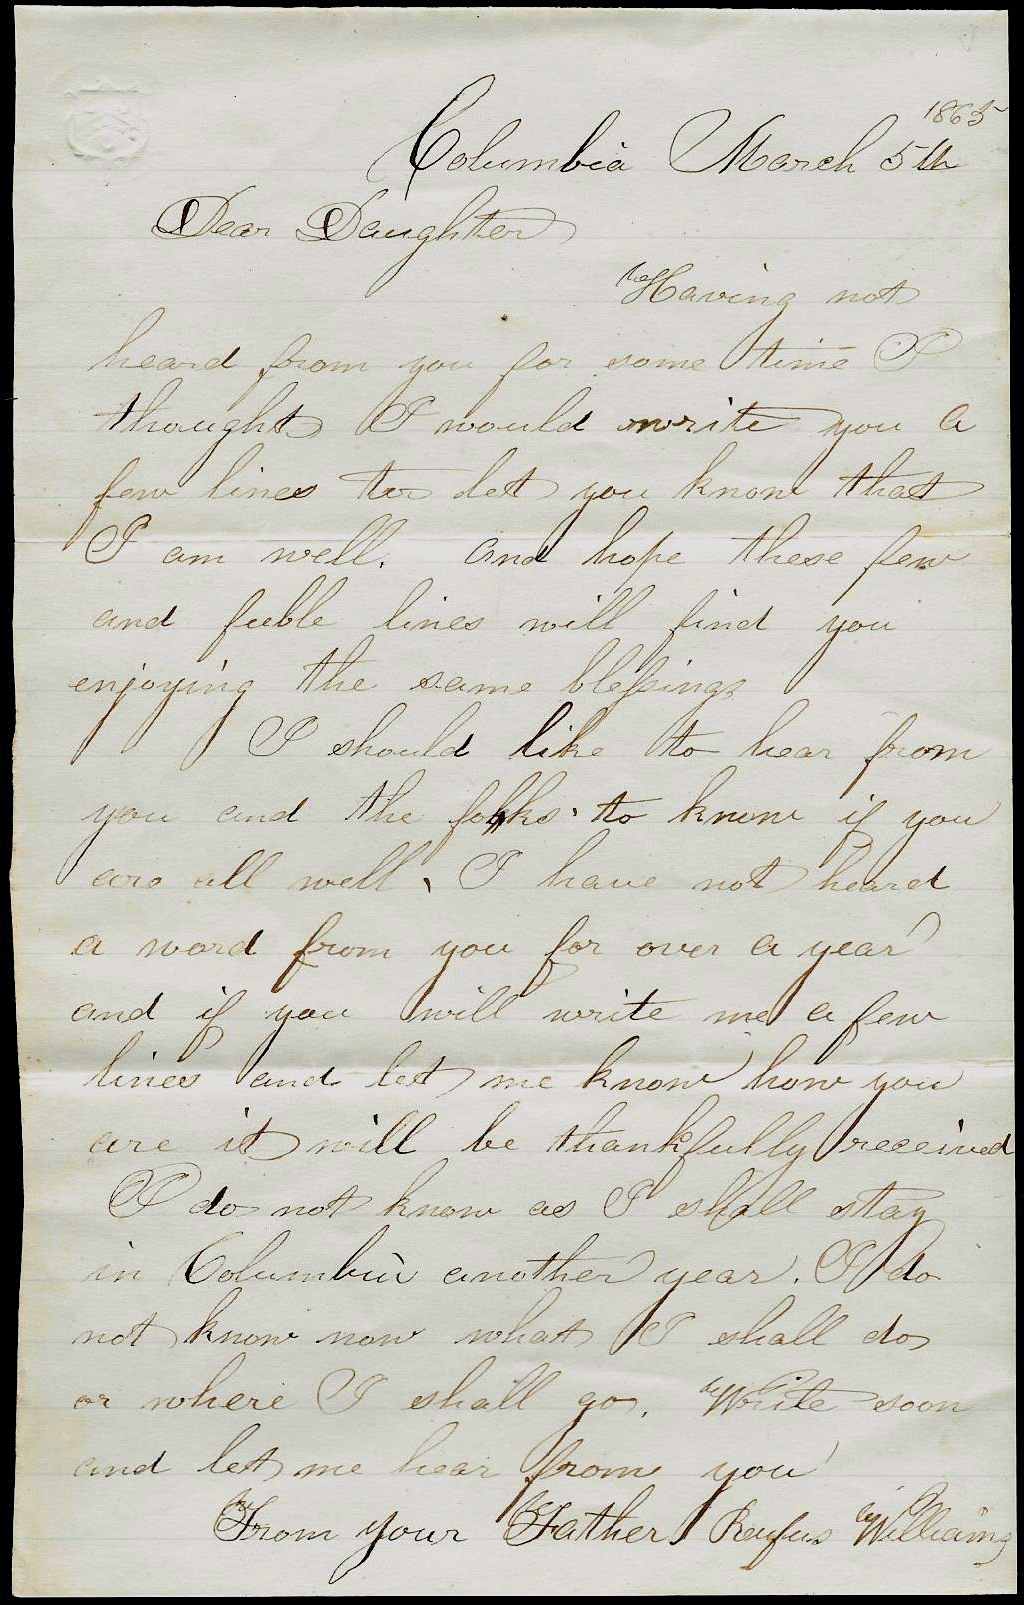 1865
Columbia March 5th
Dear Daughter
Having not
heard from you for some time I
thought I would write you a
few lines to let you know that
I am well. and hope these few
and feeble lines will find you
enjoying the same blessings
I should like to hear from
you and the folks. to know if you
are all well. I have not heard
a word from you for over a year
and if you will write me a few
lines and let me know how you
are it will be thankfully received
I do not know as I shall stay
in Columbia another year. I do
not know now what I shall do
or where I shall go. Write soon
and let me hear from you
From your Father Rufus Williams